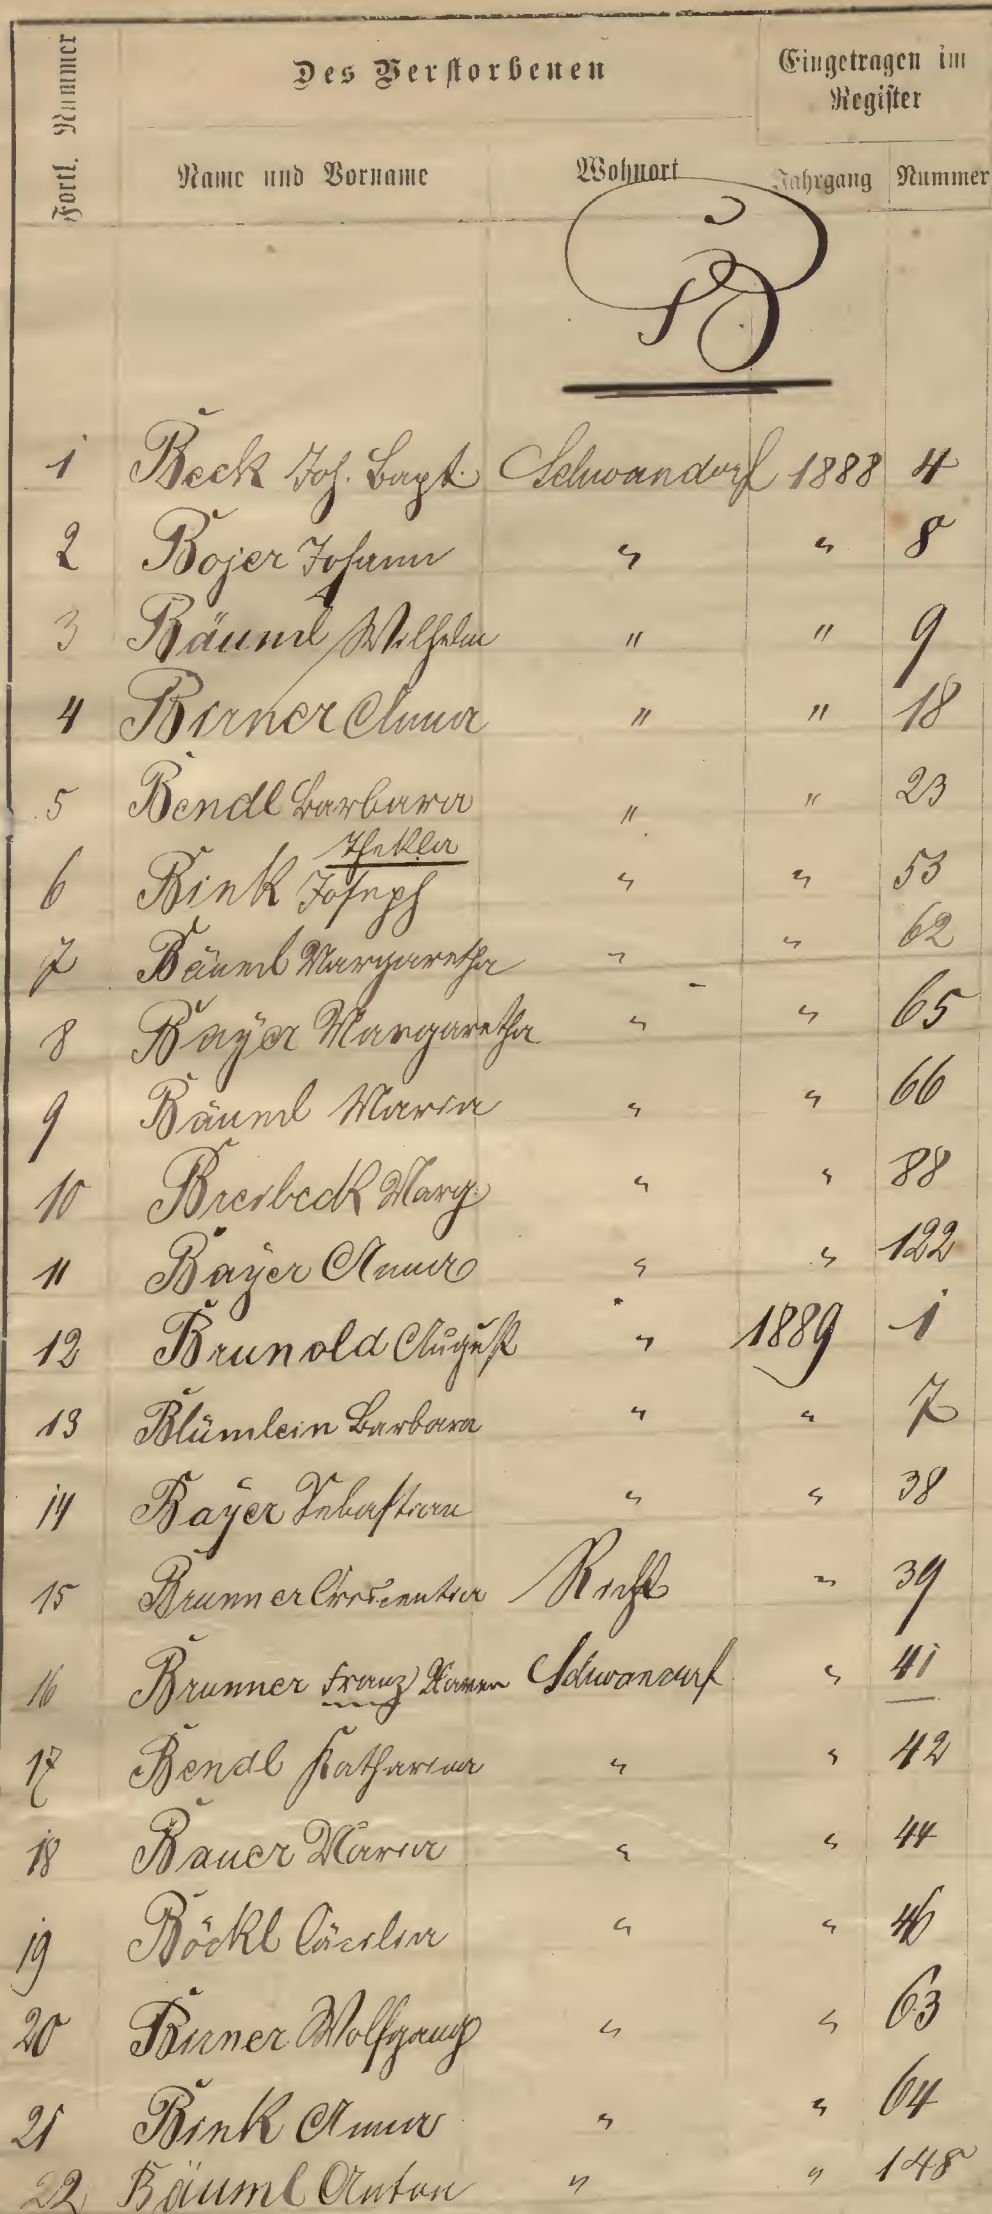 Fortl. Nummer
Des Verstorbenen
Eingetragen im Register
Name und Vorname Wohnort Jahrgang Nummer
B
1 Beck Joh. Bapt. Schwandorf 1888 4
2 Bojer Johann " " 8
3 Bäuml Wilhelm " " 9
4 Birner Anna " " 18
5 Bendl Barbara " " 23
Thekla
6 Bink Joseph " " 53
7 Bäuml Margaretha " " 62
8 Bayer Margaretha " " 65
9 Bäuml Maria " " 66
10 Breibeck Marg. " " 88
11 Bayer Anna " " 122
12 Brunold August " 1889 1
13 Blümlein Barbara " " 7
14 Bayer Sebastian " " 38
15 Brunner Crescentia Richt " 39
16 Brunner Franz Xaver Schwandorf " 41
17 Bendl Katharina " " 42
18 Bauer Maria " " 44
19 Böckl Cäcilia " " 46
20 Birner Wolfgang " " 63
21 Bink Anna " " 64
22 Bäuml Anton " " 148